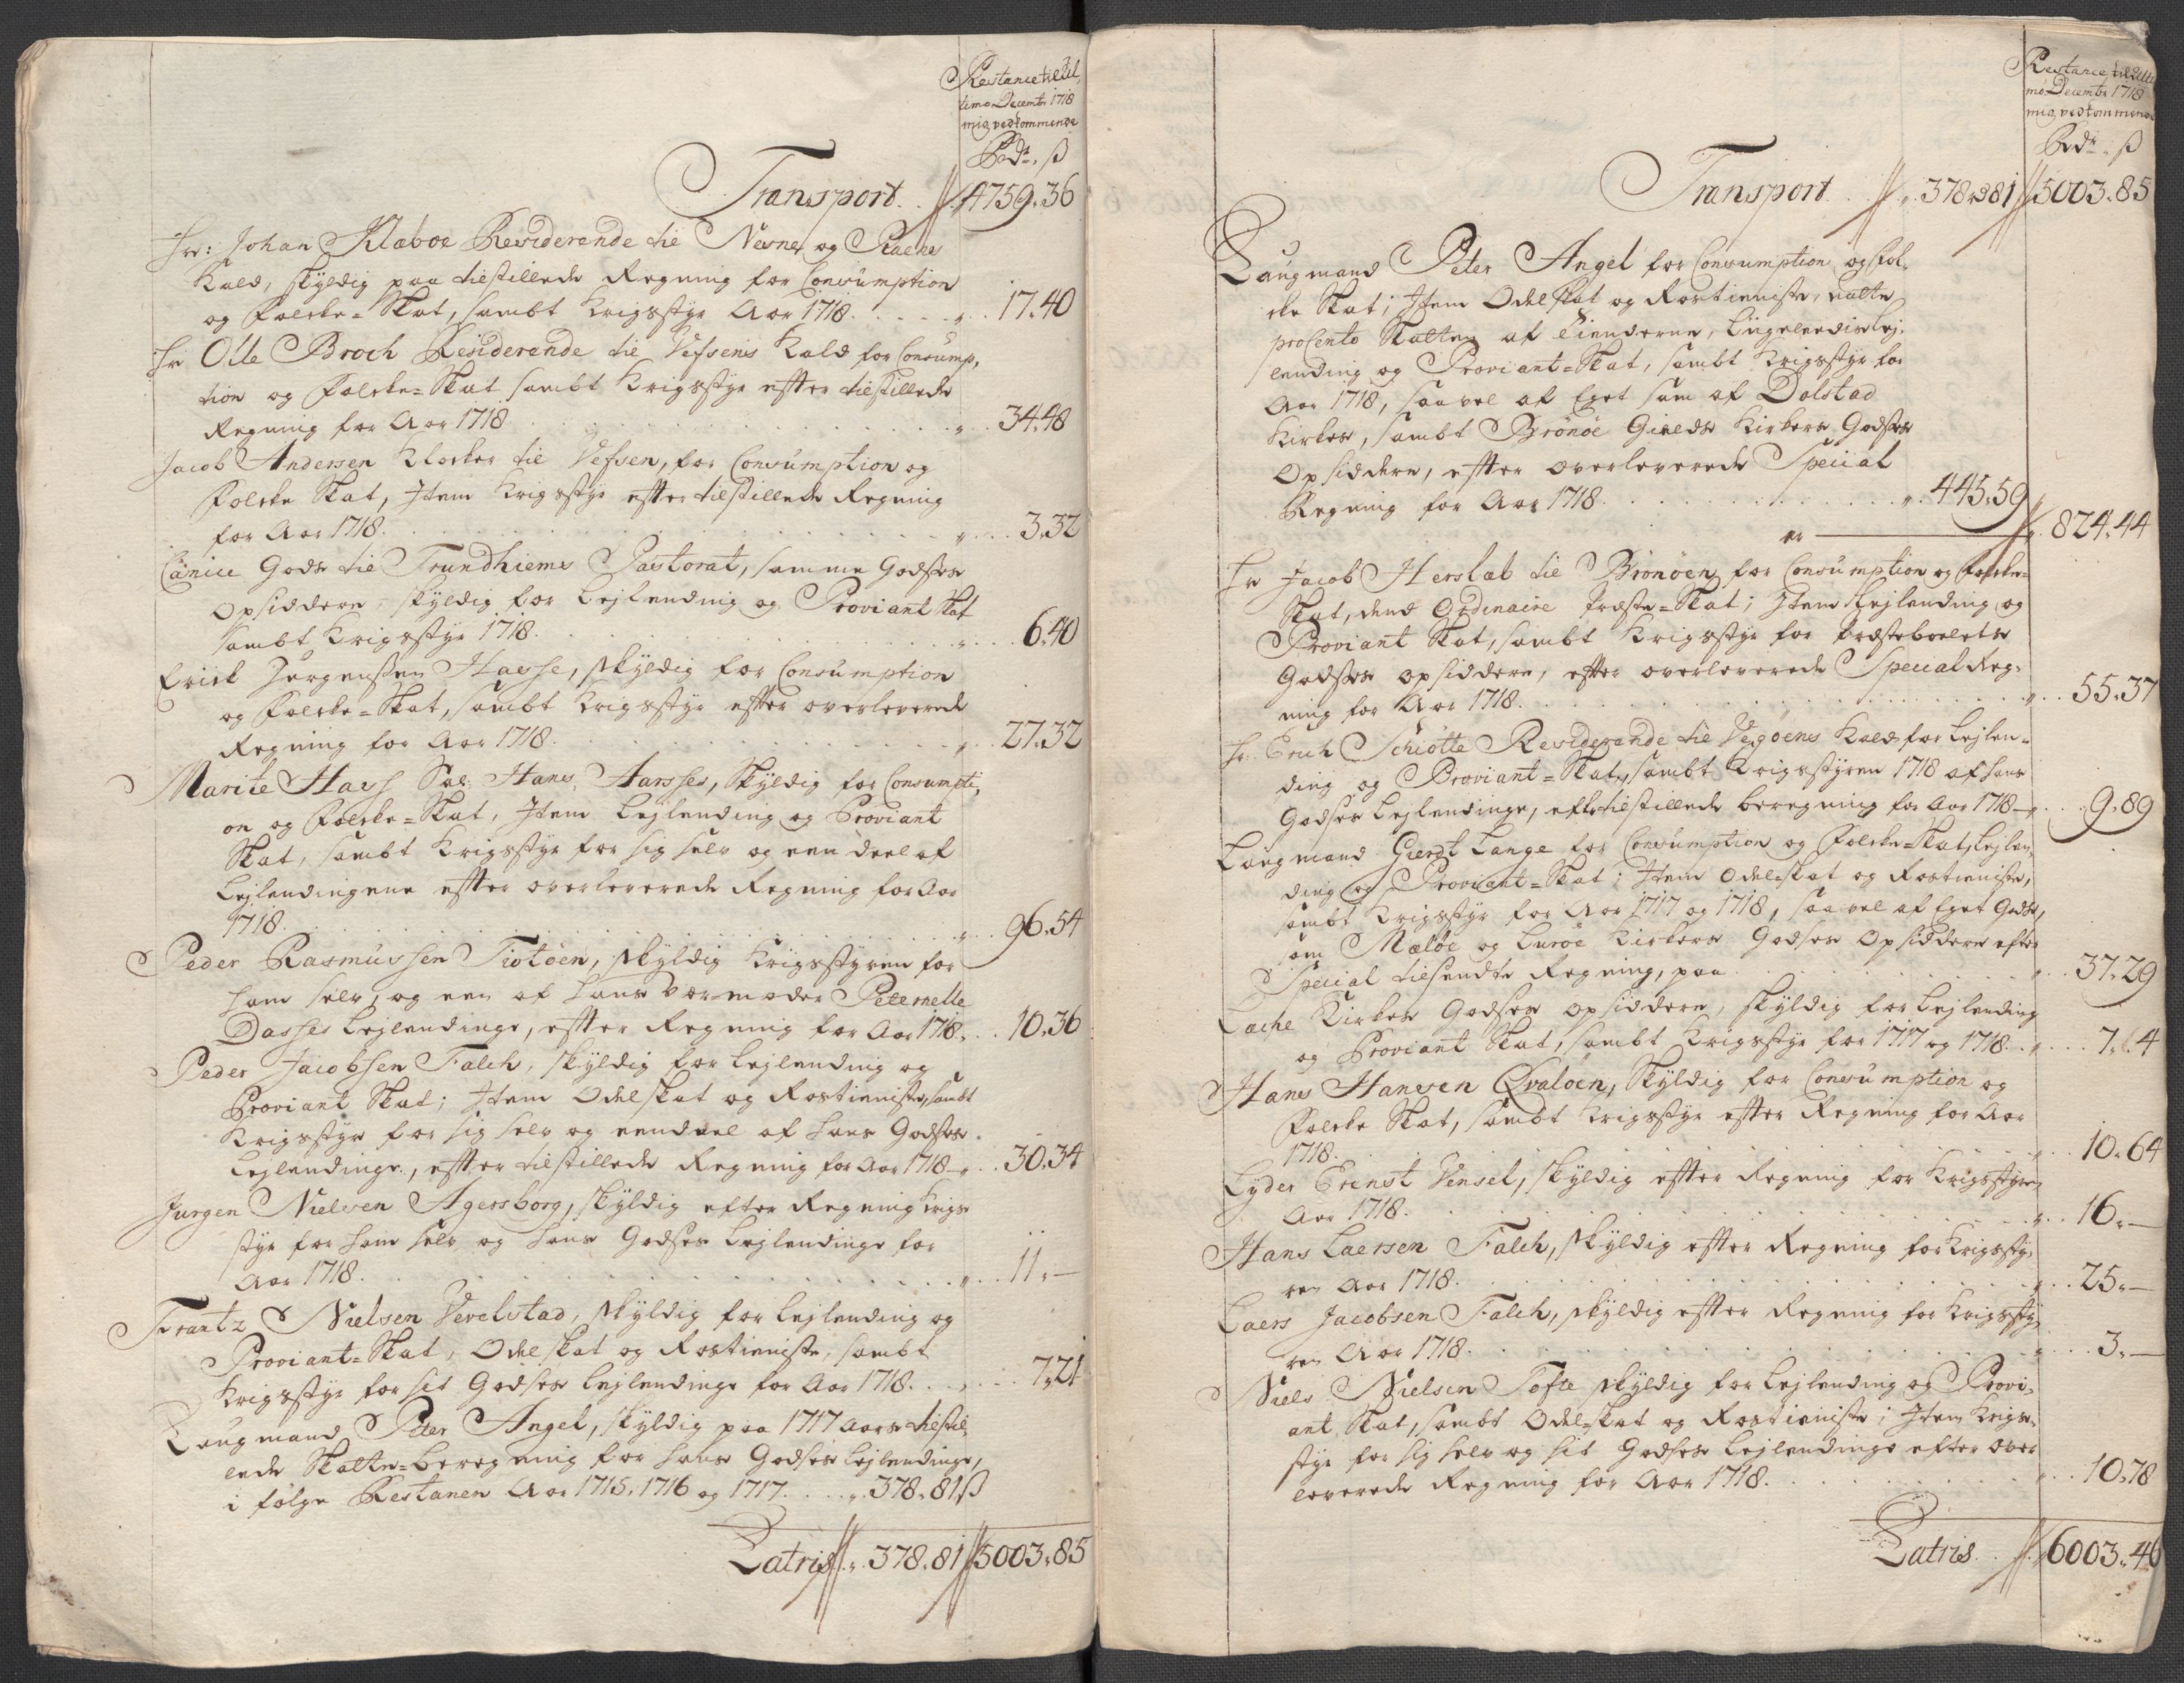 Restance til Ul,
timo Decembr 1718
mig vedkommende
Rdr. ß
Transport. . 4759.36
Hr: Johan Klæboe Residerende til Nesne og Ranens
Kald, skyldig paa tilstillede Regning for Consumption
og Folcke-Skat, sambt Krigsstyr Aar 1718 . . . . 17.40
Hr Olle Broch Residerende til Vefsens Kald for Consump,
tion og Folcke-Skat sambt Krigsstyr efter tilstillede
Regning for Aar 1718 . . . . 34.48
Jacob Andersen Klocker til Vefsen, for Consumption og
Folcke Skat, Item Krigsstyr efter tilstillede Regning
for Aar 1718. . . . . 3.32
Canice Gods til Trundhiems Pastorat, samme Godses
Opsiddere, skyldig for Lejlending og Proviant Skat
sambt Krigsstyr 1718. . . . . 6.40
Erick Jørgenssen Hasse, skyldig for Consumption
og Folcke-Skat, sambt Krigsstyr efter overleverede
Regning for Aar 1718. . . . . 27.32
Marite Hass Sal: Hans Aarsses, Skyldig for Consumpti,
on og Folcke-Skat, Item Lejlending og Proviant
Skat, sambt Krigsstyr for sig selv og een deel af
Lejlendingene efter overleverede Regning for Aar
1718. . . . . 96.54
Peder Rasmussen Tiøtøen, skyldig Krigsstyren for
ham selv, og een af hans Værmoder Peternelle
Dasses Lejlendinge, efter Regning for Aar 1718. . . 10.36
Peder Jacobsen Falch, skyldig for Lejlending og
Proviant Skat; Item Odelskat og Rostieniste, sambt
Krigsstyr for sig selv og eendeel af hans Godses
Lejlendinge, efter tilstillede Regning for Aar 1718 . . 30.34
Jurgen Nielsen Agersborg, skyldig efter Regning Krigs
styr for ham selv og hans Godses Lejlendinge for
Aar 1718. . . . . 11.—
Frantz Nielsen Vevelstad, skyldig for Lejlending og
Proviant-Skat, Odelskat og Rostieniste, sambt
Krigsstyr for sit Godses Lejlendinge for Aar 1718. . . . 7.21
Laugmand Peter Angel, skyldig paa 1717 Aars tilstil,
lede Skatte-beregning for hans Godses Lejlendinge,
i følge Restanen Aar 1715, 1716 og 1717. . . . 378.81 ß
Latris . . 378.81 5003.85
Restance til Ulti
mo Decembr 1718
mig vedkommende
Rdr. ß
Transport . . 378.81 5003.85
Laugmand Peter Angel for Consumption og Fol,
cke Skat; Item Odelskat og Rostieniste,
procento Skatten af Tienderne, Lej,
lending og Proviant-Skat, sambt Krigsstyr for
Aar 1718, saavel af Eget som af Dolstad
Kirkes, sambt Brønøe Gields Kirkers Godses
Opsiddere, efter overleverede Special
Regning for Aar 1718. . . . . 445.59
er — 824.44
Hr Jacob Herslab til Brønøen for Consumption og Folcke-
Skat, dend Ordinaire Præste-Skat; Item Lejlending og
Proviant Skat, sambt Krigsstyr for Præstebolets
Godses Opsiddere, efter overleverede Special Reg-
ning for Aar 1718. . . . . 55.37
Hr. Erich Schiøtte Residerende til Vegøens Kald for Lejlen-
ding og Proviant-Skat, sambt Krigsstyren 1718 af hans
Godses Lejlendinge, efter tilstillede beregning for Aar 1718 . . 9.89
Laugmand Giert Lange for Consumption og Folcke-Skat, Lejlen,
ding og Proviant-Skat; Item Odelskat og Rostieniste,
sambt Krigsstyr for Aar 1717 og 1718, saavel af Eget Gods,
som Meløe og Lurøe Kirkers Godses Opsiddere efter
Special tilsendte Regning, paa . . . . 37.29
Kirkes Godses Opsiddere, skyldig for Lejlending
og Proviant Skat, sambt Krigsstyr for 1717 og 1718. . . 7.64
Hans Hansen Qvaløen, Skyldig for Consumption og
Folcke Skat, sambt Krigsstyr efter Regning for Aar
1718. . . . . 10.64
Lyder Ernst Vensel, skyldig efter Regning for Krigsstyren
Aar 1718. . . . . 16.—
Hans Laersen Falch, skyldig efter Regning for Krigssty,
ren Aar 1718. . . . . 25.—
Laers Jacobsen Falch, skyldig efter Regning for Krigssty,
ren Aar 1718. . . . . 3.—
Niels Nielsen Tofte skyldig for Lejlending og Provi,
ant Skat, sambt Odelskat og Rostieniste; Item Krigs-
styr for sig selv og sit Godses Lejlendinge efter over
leverede Regning for Aar 1718. . . . . 10.78
Latris . . 6003.46